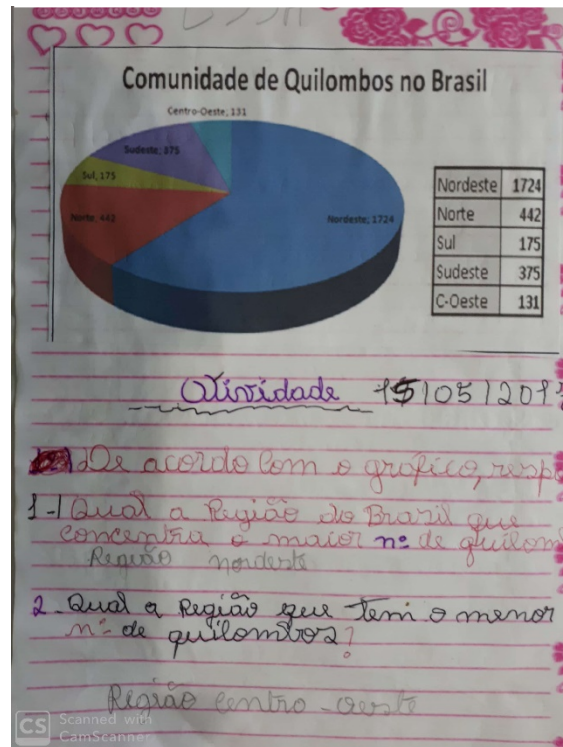 Comunidade de Quilombos no Brasil
Centro-Oeste; 131
Sudeste; 375
Sul; 175
Norte; 442
Nordeste; 1724
Nordeste 1724
Norte 442
Sul 175
Sudeste 375
C-Oeste 131
Atividade 15/05/201
De acordo com o gráfico, resp
1-) Qual a Região do Brasil que
concentra o maior nº de quilom
Região nordeste
2- Qual a Região que tem o menor
nº de quilombos?
Região centro-oeste
CS Scanned with
CamScanner